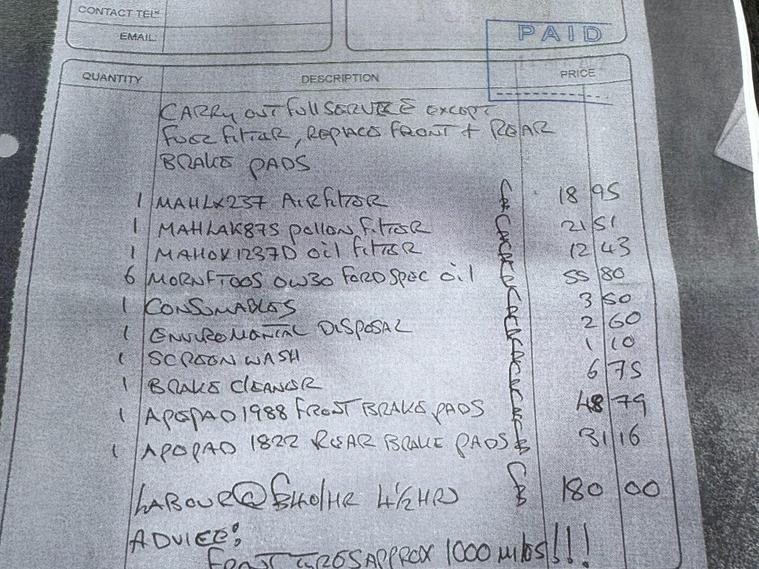 CONTACT TEL
EMAIL:
PAID
QUANTITY DESCRIPTION PRICE
CARRY OUT FULL SERVICE EXCEPT
FUEL FILTER, REPLACE FRONT + REAR
BRAKE PADS
1 MAHLX237 AIR FILTER 18 95
1 MAHLAK875 pollon filter 21 51
1 MAHOX1237D oil filter 12 43
6 0W30 FORD SPEC oil 55 80
1 CONSUMABLES 3 50
1 ENVIROMONTAL DISPOSAL 2 60
1 SCREEN WASH 1 10
1 BRAKE CLEANER 6 75
1 APOPAD1988 FRONT BRAKE PADS 48 79
1 APOPAD 1822 REAR BRAKE PADS 31 16
LABOUR @ £40/HR 4 1/2 HRS 180 00
ADVICE:
FRONT TYRES APPROX 1000 miles!!!